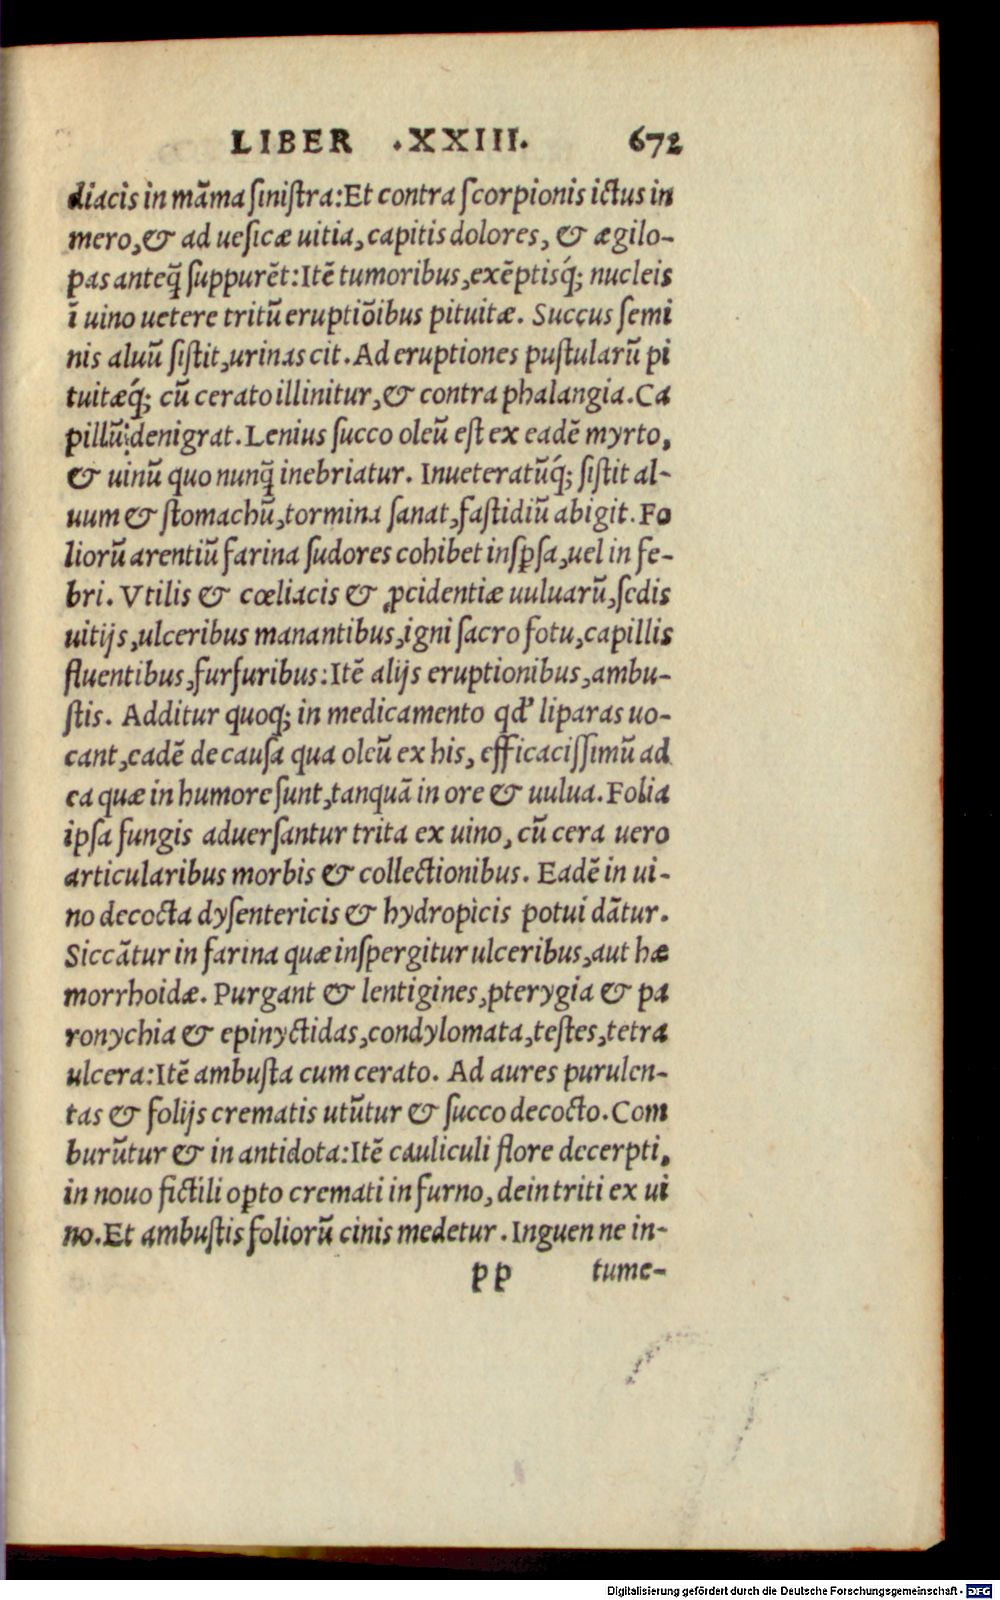 LIBER .XXIII. 672
diacis in mãma ſiniſtra:Et contra ſcorpionis ictus in
mero,& ad ueſicæ uitia,capitis dolores, & ægilo-
pas anteq̃ ſuppurẽt:Itẽ tumoribus,exẽptisq́; nucleis
ĩ uino uetere tritũ eruptiõibus pituitæ. Succus ſemi
nis aluũ ſiſtit,urinas cit. Ad eruptiones puſtularũ pi
tuitæq́; cũ cerato illinitur,& contra phalangia.Ca
pillũ denigrat.Lenius ſucco oleũ eſt ex eadẽ myrto,
& uinũ quo nunq̃ inebriatur. Inueteratũq́; ſiſtit al-
uum & ſtomachũ,tormina ſanat,faſtidiũ abigit. Fo
liorũ arentiũ farina ſudores cohibet inſꝑſa,uel in fe-
bri. Vtilis & cœliacis & ꝓcidentiæ uuluarũ,ſedis
uitijs,ulceribus manantibus,igni ſacro fotu,capillis
fluentibus,furfuribus:Itẽ alijs eruptionibus,ambu-
ſtis. Additur quoq; in medicamento qđ liparas uo-
cant,eadẽ de cauſa qua oleũ ex his, efficaciſſimũ ad
ea quæ in humore ſunt,tanquã in ore & uulua.Folia
ipſa fungis aduerſantur trita ex uino, cũ cera uero
articularibus morbis & collectionibus. Eadẽ in ui-
no decocta dyſentericis & hydropicis potui dãtur.
Siccãtur in farina quæ inſpergitur ulceribus,aut hæ
morrhoidæ. Purgant & lentigines,pterygia & pa
ronychia & epinyctidas,condylomata,teſtes,tetra
ulcera:Itẽ ambuſta cum cerato. Ad aures purulen-
tas & folijs crematis utũtur & ſucco decocto.Com
burũtur & in antidota:Itẽ cauliculi flore decerpti,
in nouo fictili oꝑto cremati in furno, dein triti ex ui
no.Et ambuſtis foliorũ cinis medetur. Inguen ne in-
pp tume-
Digitalisierung gefördert durch die Deutsche Forschungsgemeinschaft - DFG